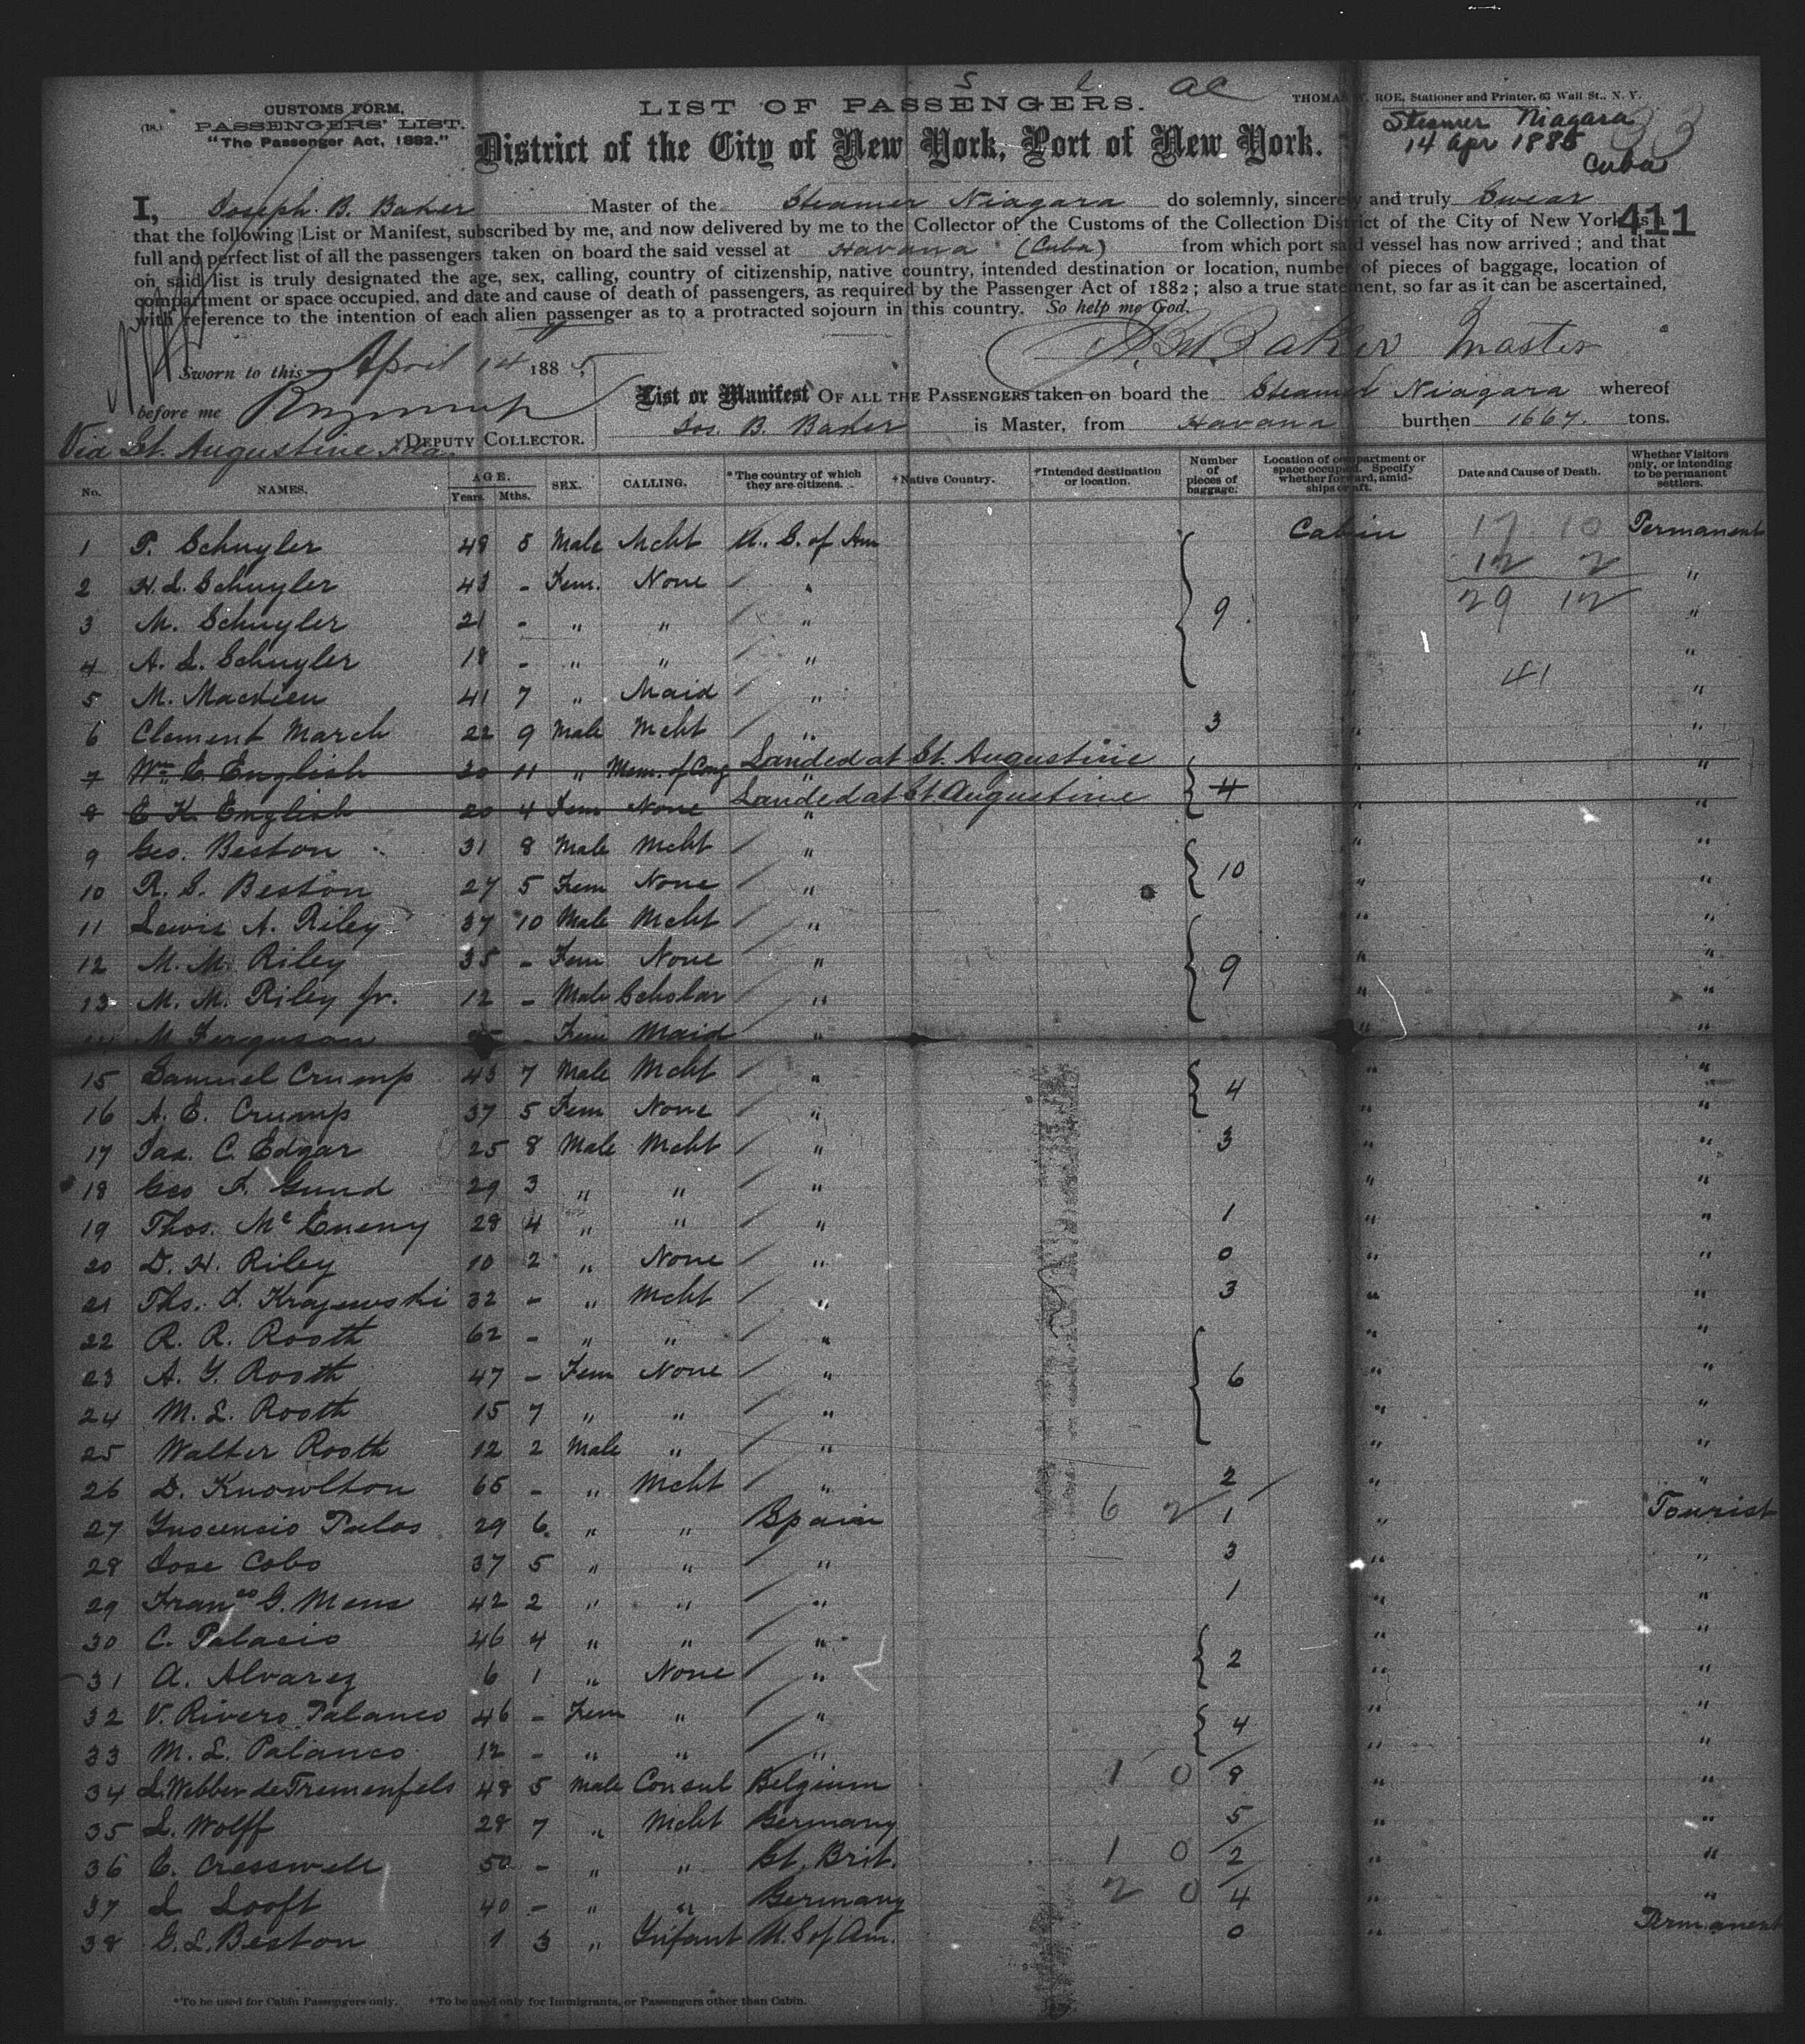 S L ac
CUSTOMS FORM.
(18.) PASSENGERS' LIST.
"The Passenger Act, 1882."
LIST OF PASSENGERS.
District of the City of New York, Port of New York.
THOMAS W. ROE, Stationer and Printer, 63 Wall St., N. Y.
Steamer Niagara
14 Apr 1885
Cuba
33
411
I, Joseph. B. Baker Master of the Steamer Niagara do solemnly, sincerely and truly Swear
that the following List or Manifest, subscribed by me, and now delivered by me to the Collector of the Customs of the Collection District of the City of New York, is a
full and perfect list of all the passengers taken on board the said vessel at Havana (Cuba) from which port said vessel has now arrived ; and that
on said list is truly designated the age, sex, calling, country of citizenship, native country, intended destination or location, number of pieces of baggage, location of
compartment or space occupied, and date and cause of death of passengers, as required by the Passenger Act of 1882 ; also a true statement, so far as it can be ascertained,
with reference to the intention of each alien passenger as to a protracted sojourn in this country. So help me God.
Baker Master
Sworn to this April 14 1885,
before me
Via St. Augustine Fla. DEPUTY COLLECTOR.
List or Manifest OF ALL THE PASSENGERS taken on board the Steamer Niagara whereof
Jos. B. Baker is Master, from Havana burthen 1667. tons.
No. NAMES. AGE. Years. Mths. SEX. CALLING. *The country of which they are citizens. †Native Country. †Intended destination or location. Number of pieces of baggage. Location of compartment or space occupied. Specify whether forward, amidships or aft. Date and Cause of Death. Whether Visitors only, or intending to be permanent settlers.
1 P. Schuyler 48 5 Male Mcht U. S. of Am Cabin 17 10 Permanent
2 H. L. Schuyler 43 - Fem. None " 12 2 "
3 M. Schuyler 21 - " " " 9 " 29 12 "
4 A. L. Schuyler 18 - " " " " "
5 M. 41 7 " Maid " " 41 "
6 Clement March 22 9 Male Mcht " 3 " "
7 Wm E. English 30 11 " Mem. of Cong Landed at St. Augustine " "
8 E. K. English 20 4 Fem None Landed at St Augustine 4 " "
9 Geo. Beston 31 8 Male Mcht " " "
10 R. S. Beston 27 5 Fem None " 10 " "
11 Lewis A. Riley 37 10 Male Mcht " " "
12 M. M. Riley 35 - Fem None " 9 " "
13 M. M. Riley Jr. 12 - Male Scholar " " "
14 M Ferguson - Fem Maid " " "
15 Samuel Crump 43 7 Male Mcht " " "
16 A. E. Crump 37 5 Fem None " 4 " "
17 Jas. C. Edgar 25 8 Male Mcht " 3 " "
18 Geo F. Gund 29 3 " " " " "
19 Thos. McEneny 28 4 " " " 1 " "
20 D. H. Riley 10 2 " None " 0 " "
21 Ths. F. Krajewski 32 - " Mcht " 3 " "
22 R. R. Rooth 62 - " " " " "
23 A. Y. Rooth 47 - Fem None " 6 " "
24 M. L. Rooth 15 7 " " " " "
25 Walter Rooth 12 2 Male " " " "
26 D. Knowlton 65 - " Mcht " 2 " "
27 Ynocencio Palos 29 6 " " Spain 6 2 1 " Tourist
28 Jose Cobo 37 5 " " " 3 " "
29 Franco G. Mena 42 2 " " " 1 " "
30 C. Palacio 46 4 " " " " "
31 A. Alvarez 6 1 " None " 2 " "
32 V. Rivero Palanco 46 - Fem " " " "
33 M. L. Palanco 12 - " " " 4 " "
34 L. Webber de Tremenfels 48 5 Male Consul Belgium 1 0 8 " "
35 L. Wolff 28 7 " Mcht Germany 5 " "
36 E. Cresswell 50 - " " Gt. Brit. 1 0 2 " "
37 L Looft 40 - " " Germany 2 0 4 " "
38 G. L. Beston 1 3 " Infant U. S of Am. 0 " Permanent
*To be used for Cabin Passengers only. †To be used only for Immigrants, or Passengers other than Cabin.